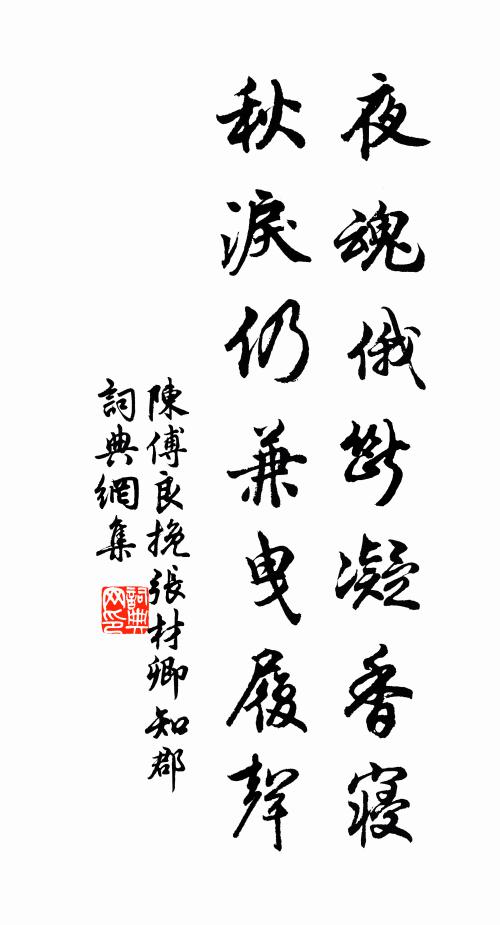 夜魂俄斷凝香寢
秋淚仍兼曳履聲
陳傅良挽張材卿知郡
詞典網集
詞典
网印